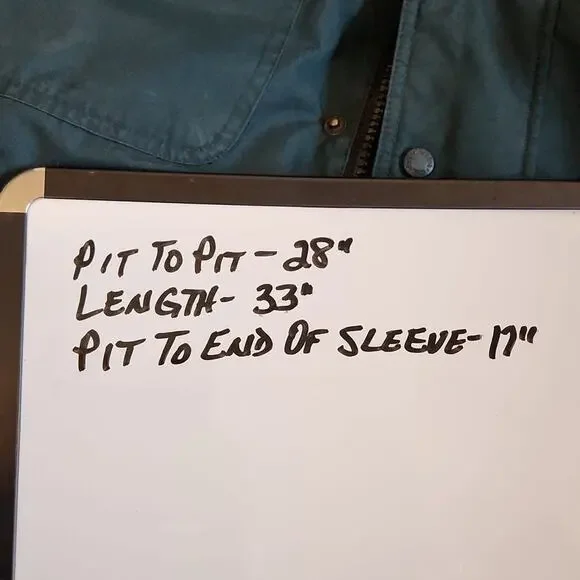 PIT TO PIT - 28"
LENGTH - 33"
PIT TO END OF SLEEVE - 17"